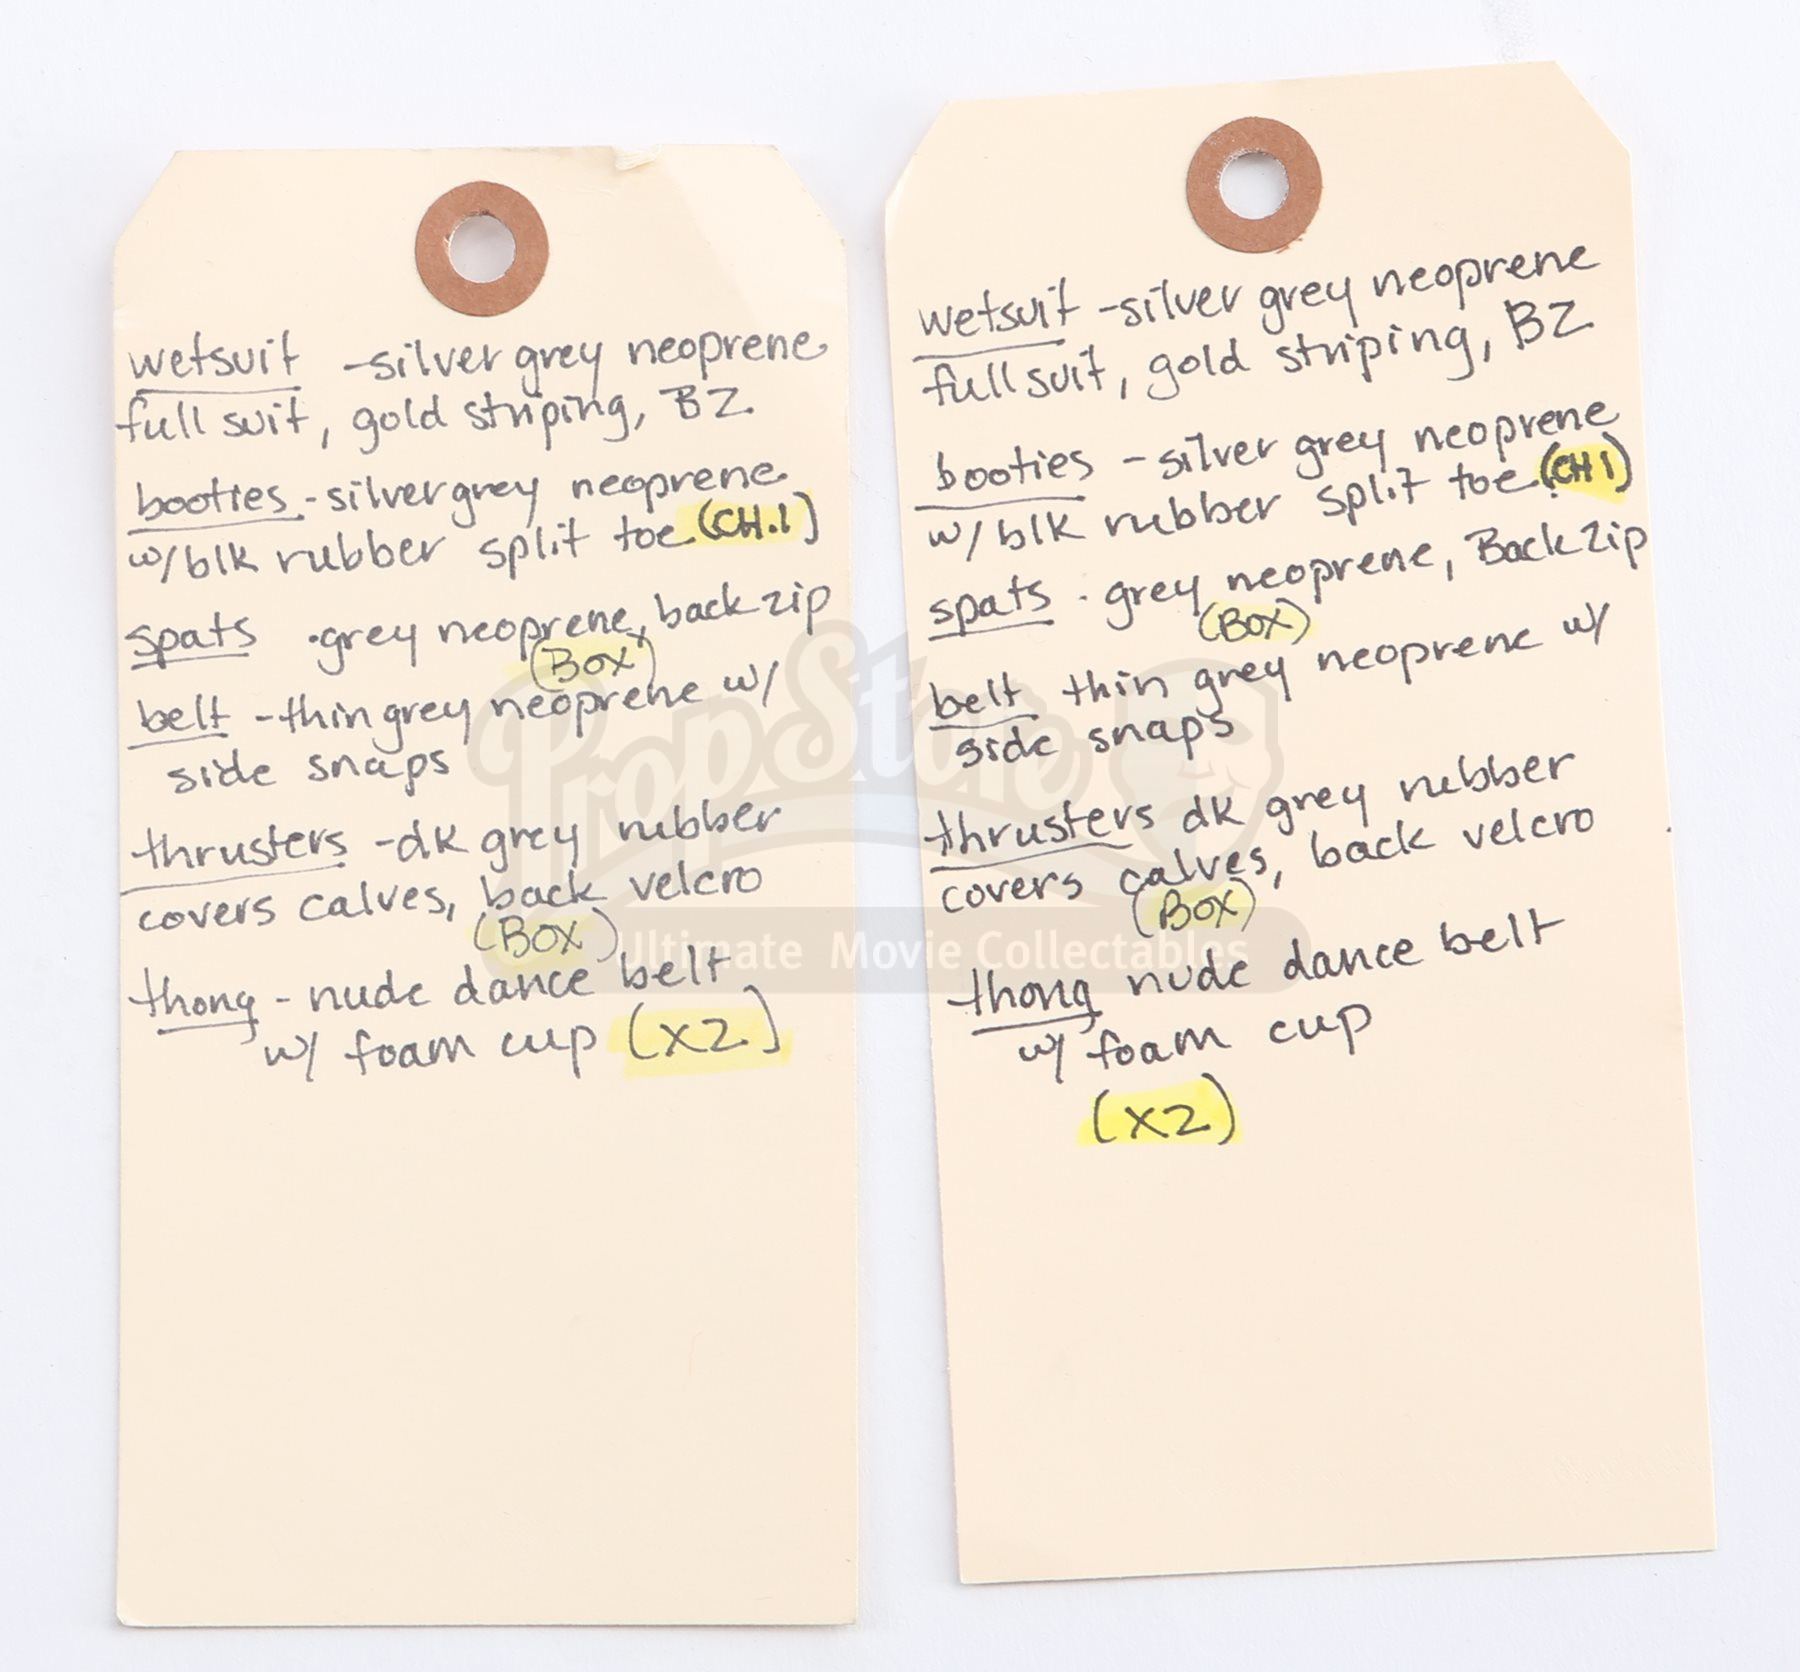 wetsuit -silver grey neoprene
full suit, gold striping, BZ
booties -silver grey neoprene
w/blk rubber split toe (CH.1)
spats -grey neoprene, back zip
(BOX)
belt -thin grey neoprene w/
side snaps
thrusters -dk grey rubber
covers calves, back velcro
(BOX)
thong - nude dance belt
w/ foam cup (x2)
wetsuit -silver grey neoprene
full suit, gold striping, BZ
booties -silver grey neoprene
w/ blk rubber split toe (CH1)
spats - grey neoprene, Back zip
(BOX)
belt thin grey neoprene w/
side snaps
thrusters dk grey rubber
covers calves, back velcro
(BOX)
thong nude dance belt
w/ foam cup
(x2)
PropStore
Ultimate Movie Collectables